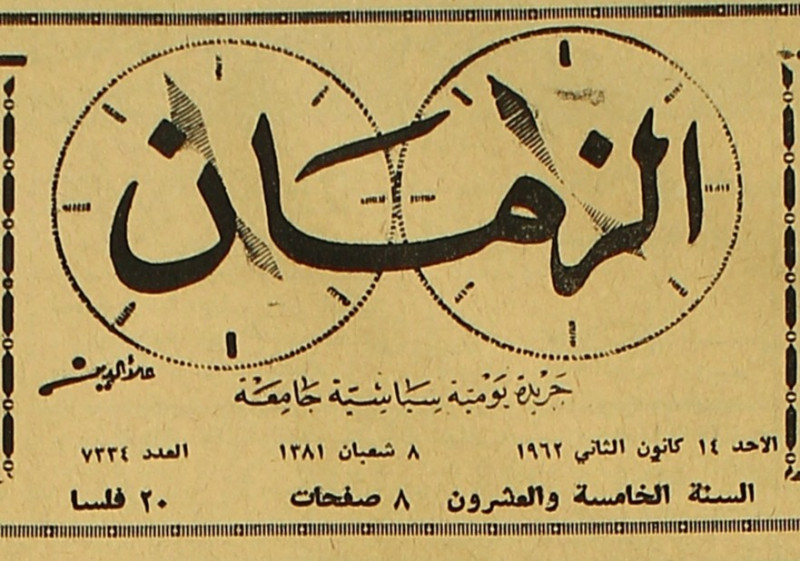 الزمان
علاءالدين
جريدة يومية سياسية جامعة
الاحد ١٤ كانون الثاني ١٩٦٢ ٨ شعبان ١٣٨١ العدد ٧٣٣٤
السنة الخامسة والعشرون ٨ صفحات ٢٠ فلسا